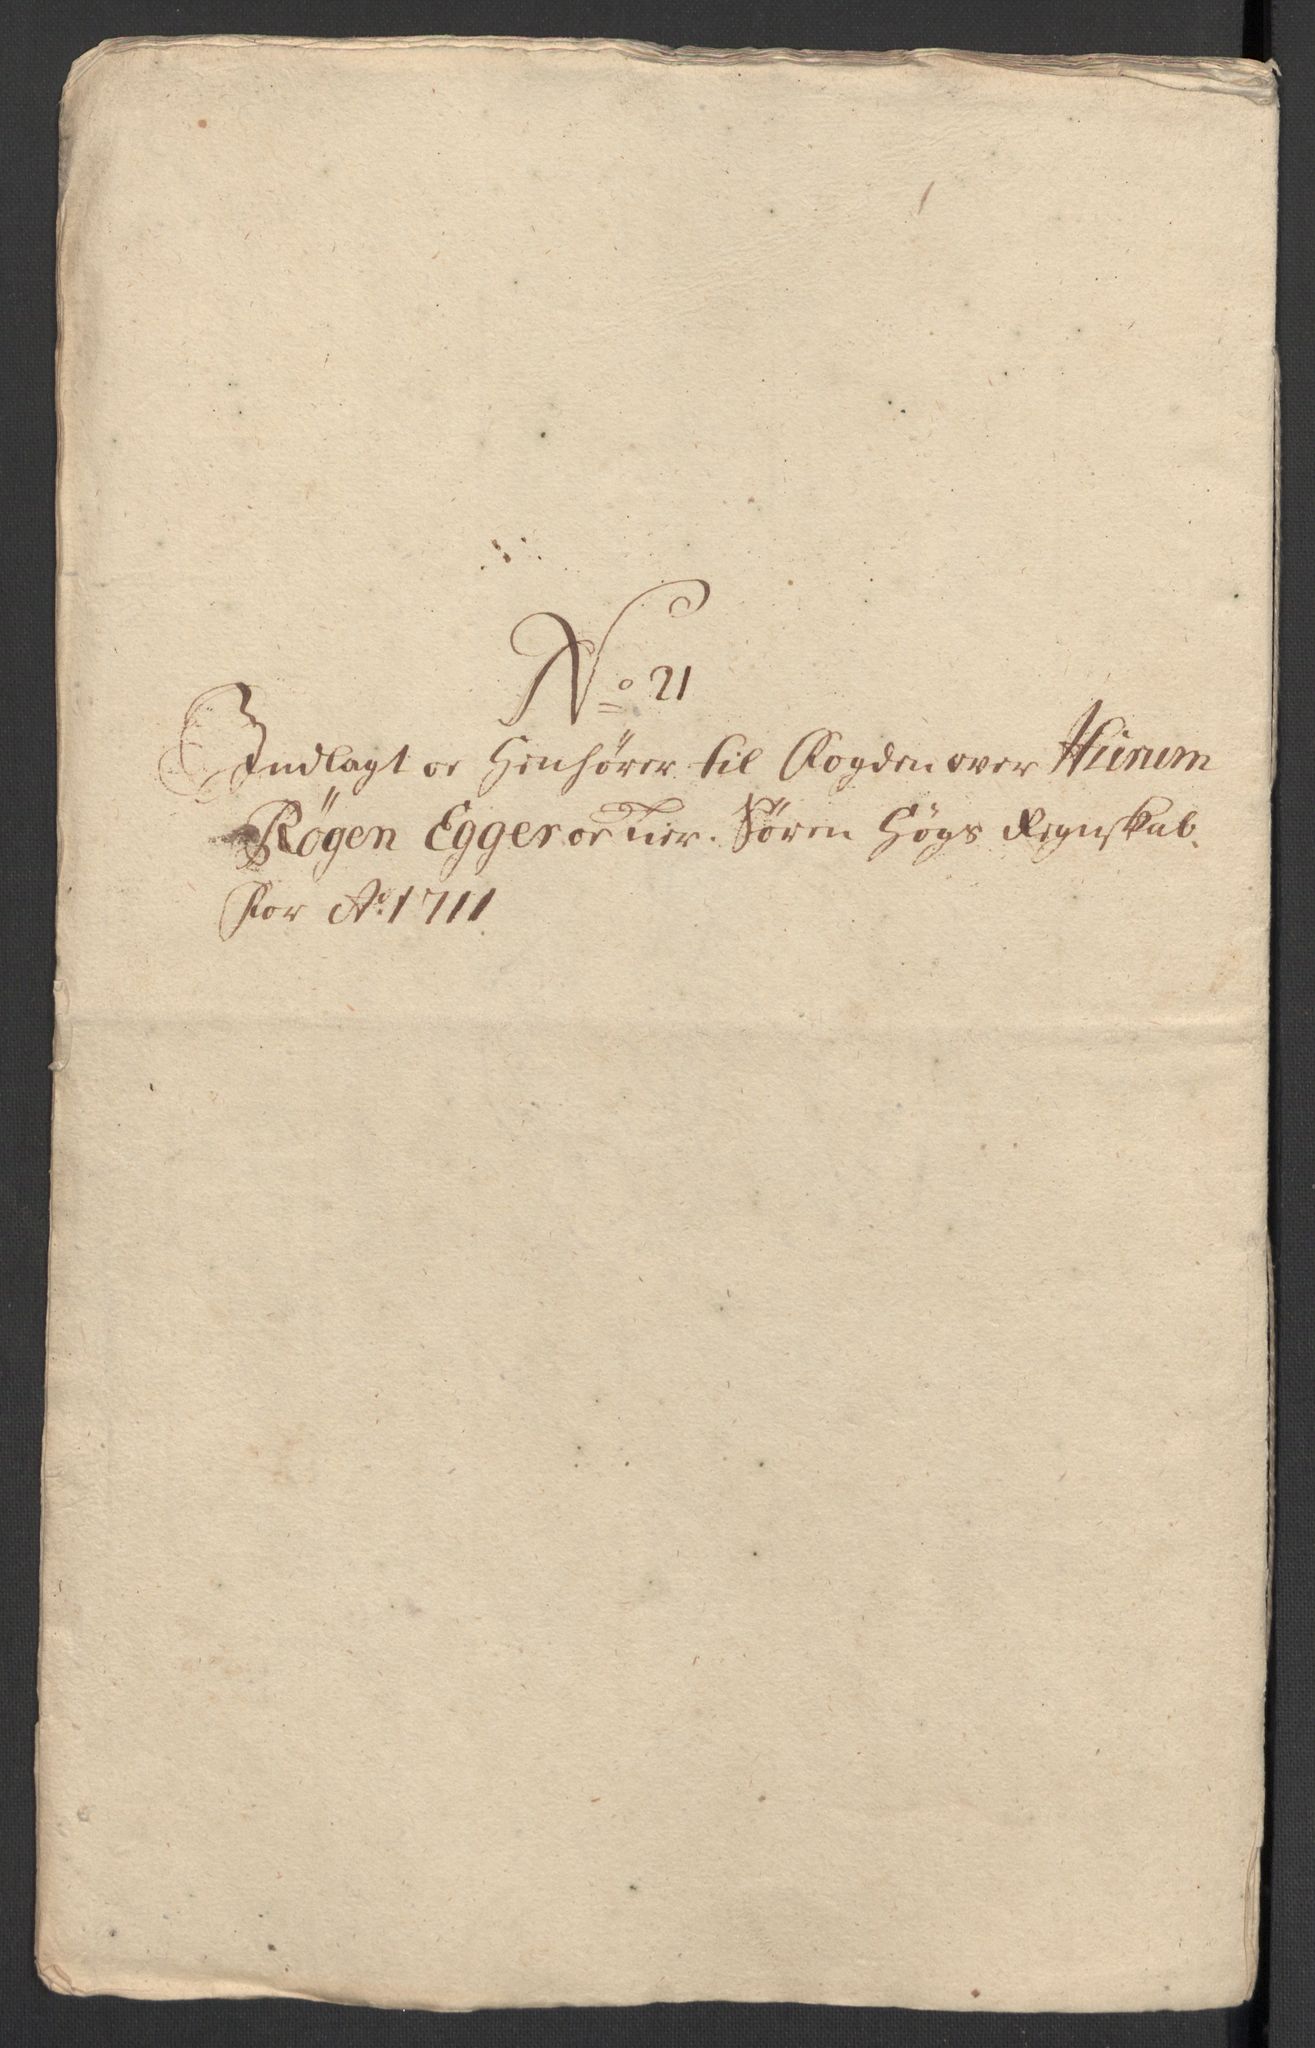 No 21
Indlagt oc Henhører til Fogden over Hurum
Røgen Egger oc Lier. Søren Høgs Regnskab.
For Ao. 1711